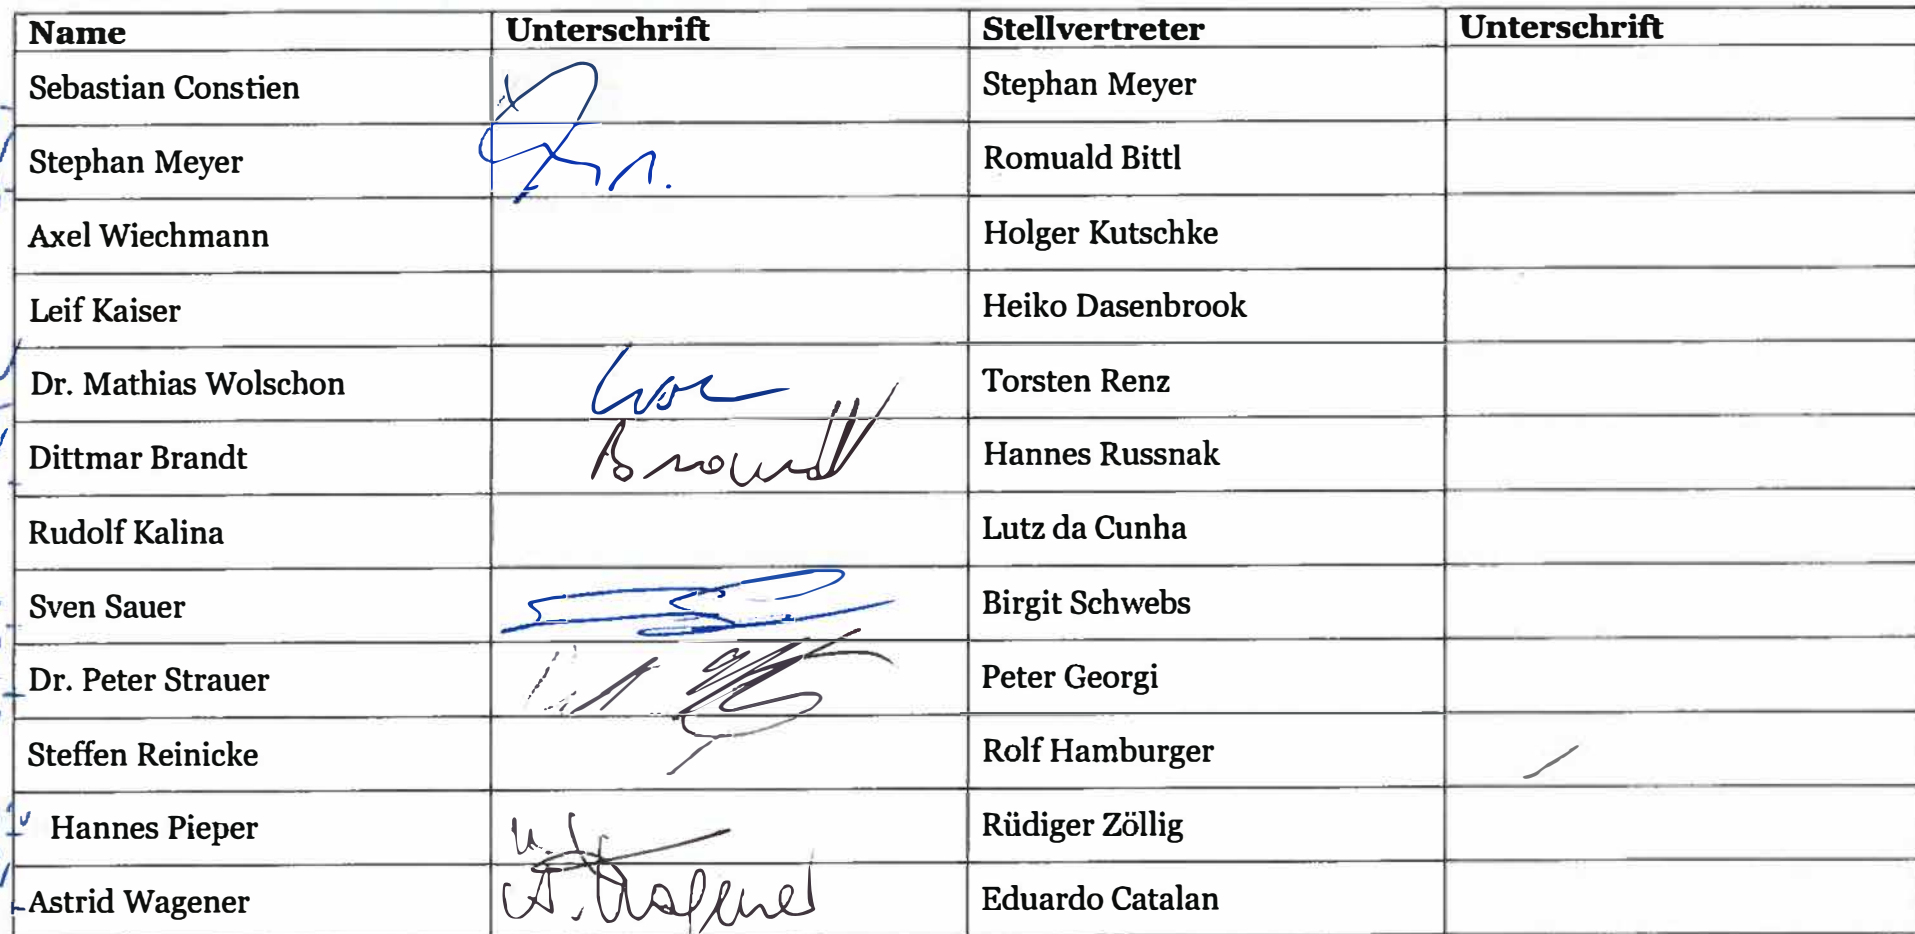 Name Unterschrift Stellvertreter Unterschrift
Sebastian Constien Stephan Meyer
Stephan Meyer Romuald Bittl
Axel Wiechmann Holger Kutschke
Leif Kaiser Heiko Dasenbrook
Dr. Mathias Wolschon Torsten Renz
Dittmar Brandt Brandt Hannes Russnak
Rudolf Kalina Lutz da Cunha
Sven Sauer Birgit Schwebs
Dr. Peter Strauer Peter Georgi
Steffen Reinicke Rolf Hamburger
Hannes Pieper Rüdiger Zöllig
Astrid Wagener A. Wagener Eduardo Catalan